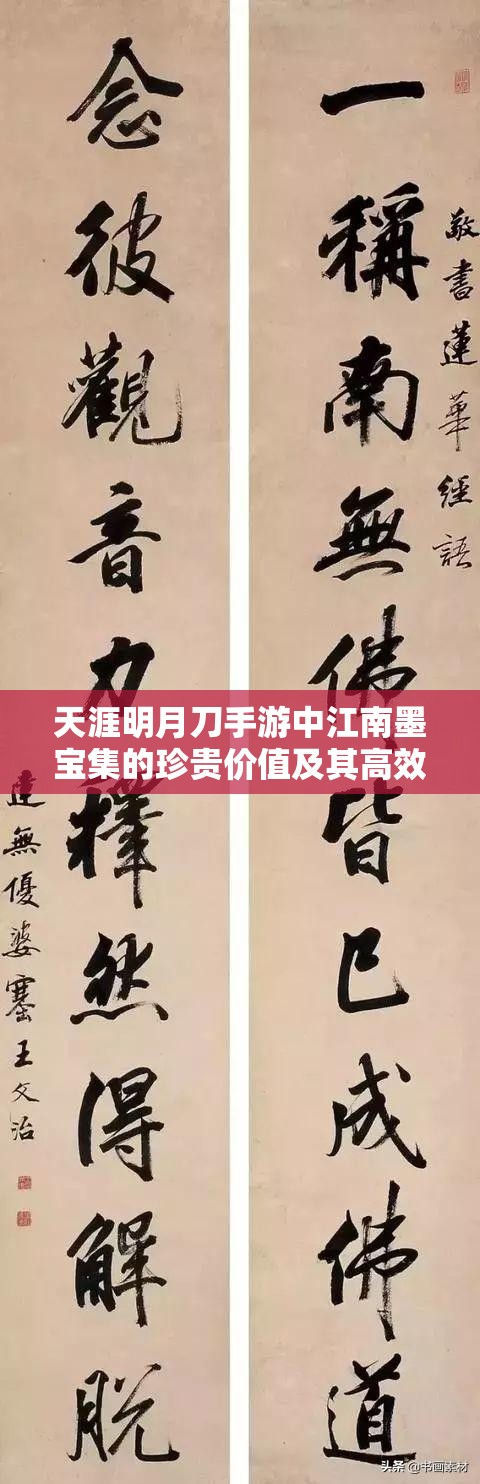 敬書蓮華經語
一稱南無佛皆已成佛道
念彼觀音力釋然得解脫
達無優婆塞王文治
天涯明月刀手游中江南墨
宝集的珍贵价值及其高效
头条 @书画素材